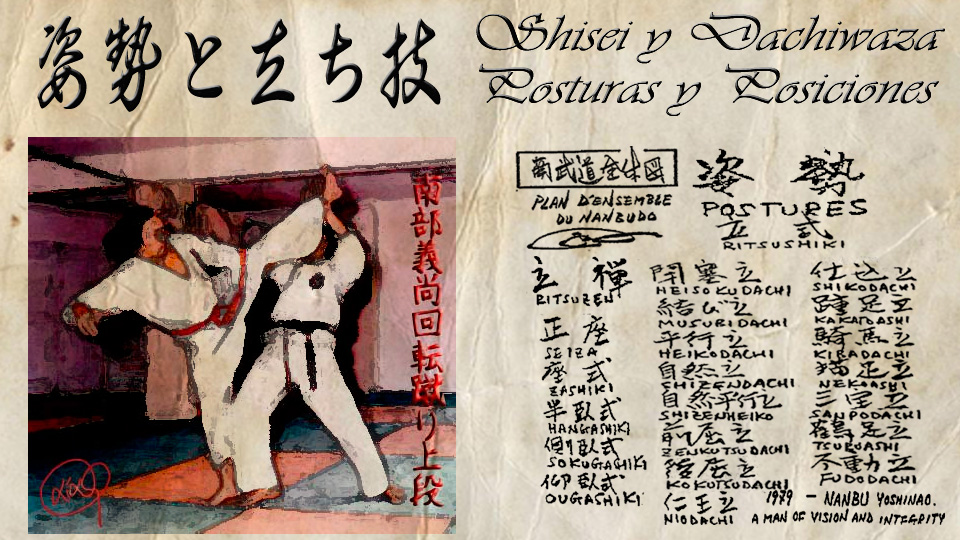 姿勢と立ち技
Shisei y Dachiwaza
Posturas y Posiciones
南部義尚回転蹴り上段
南武道全体図
PLAN D'ENSEMBLE
DU NANBUDO
姿勢
POSTURES
立式
RITSUSHIKI
立禅
RITSUZEN
正座
SEIZA
座式
ZASHIKI
半臥式
HANGASHIKI
側臥式
SOKUGASHIKI
仰臥式
OUGASHIKI
閉塞立
HEISOKUDACHI
結び立
MUSUBIDACHI
平行立
HEIKODACHI
自然立
SHIZENDACHI
自然平行立
SHIZENHEIKO
前屈立
ZENKUTSUDACHI
後屈立
KOKUTSUDACHI
仁王立
NIODACHI
仕込立
SHIKODACHI
踵足立
KAKATOASHI
騎馬立
KIBADACHI
猫足立
NEKOASHI
三宝立
SANPODACHI
鶴足立
TSURUASHI
不動立
FUDODACHI
1979 - NANBU YOSHINAO.
A MAN OF VISION AND INTEGRITY